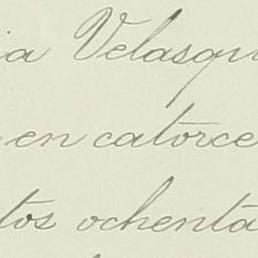 ia Velasqu
en catorce
tos ochenta